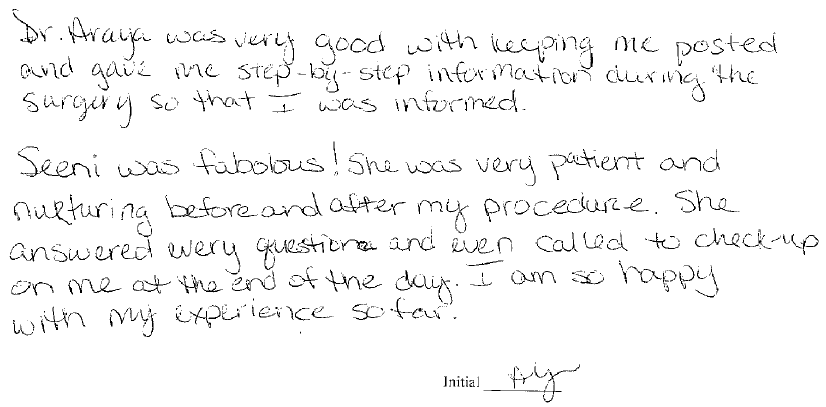 Dr. Araya was very good with keeping me posted
and gave me step-by-step information during the
surgery so that I was informed.
Seeni was fabolous! She was very patient and
nurturing before and after my procedure. She
answered every question and even called to check-up
on me at the end of the day. I am so happy
with my experience so far.
Initial